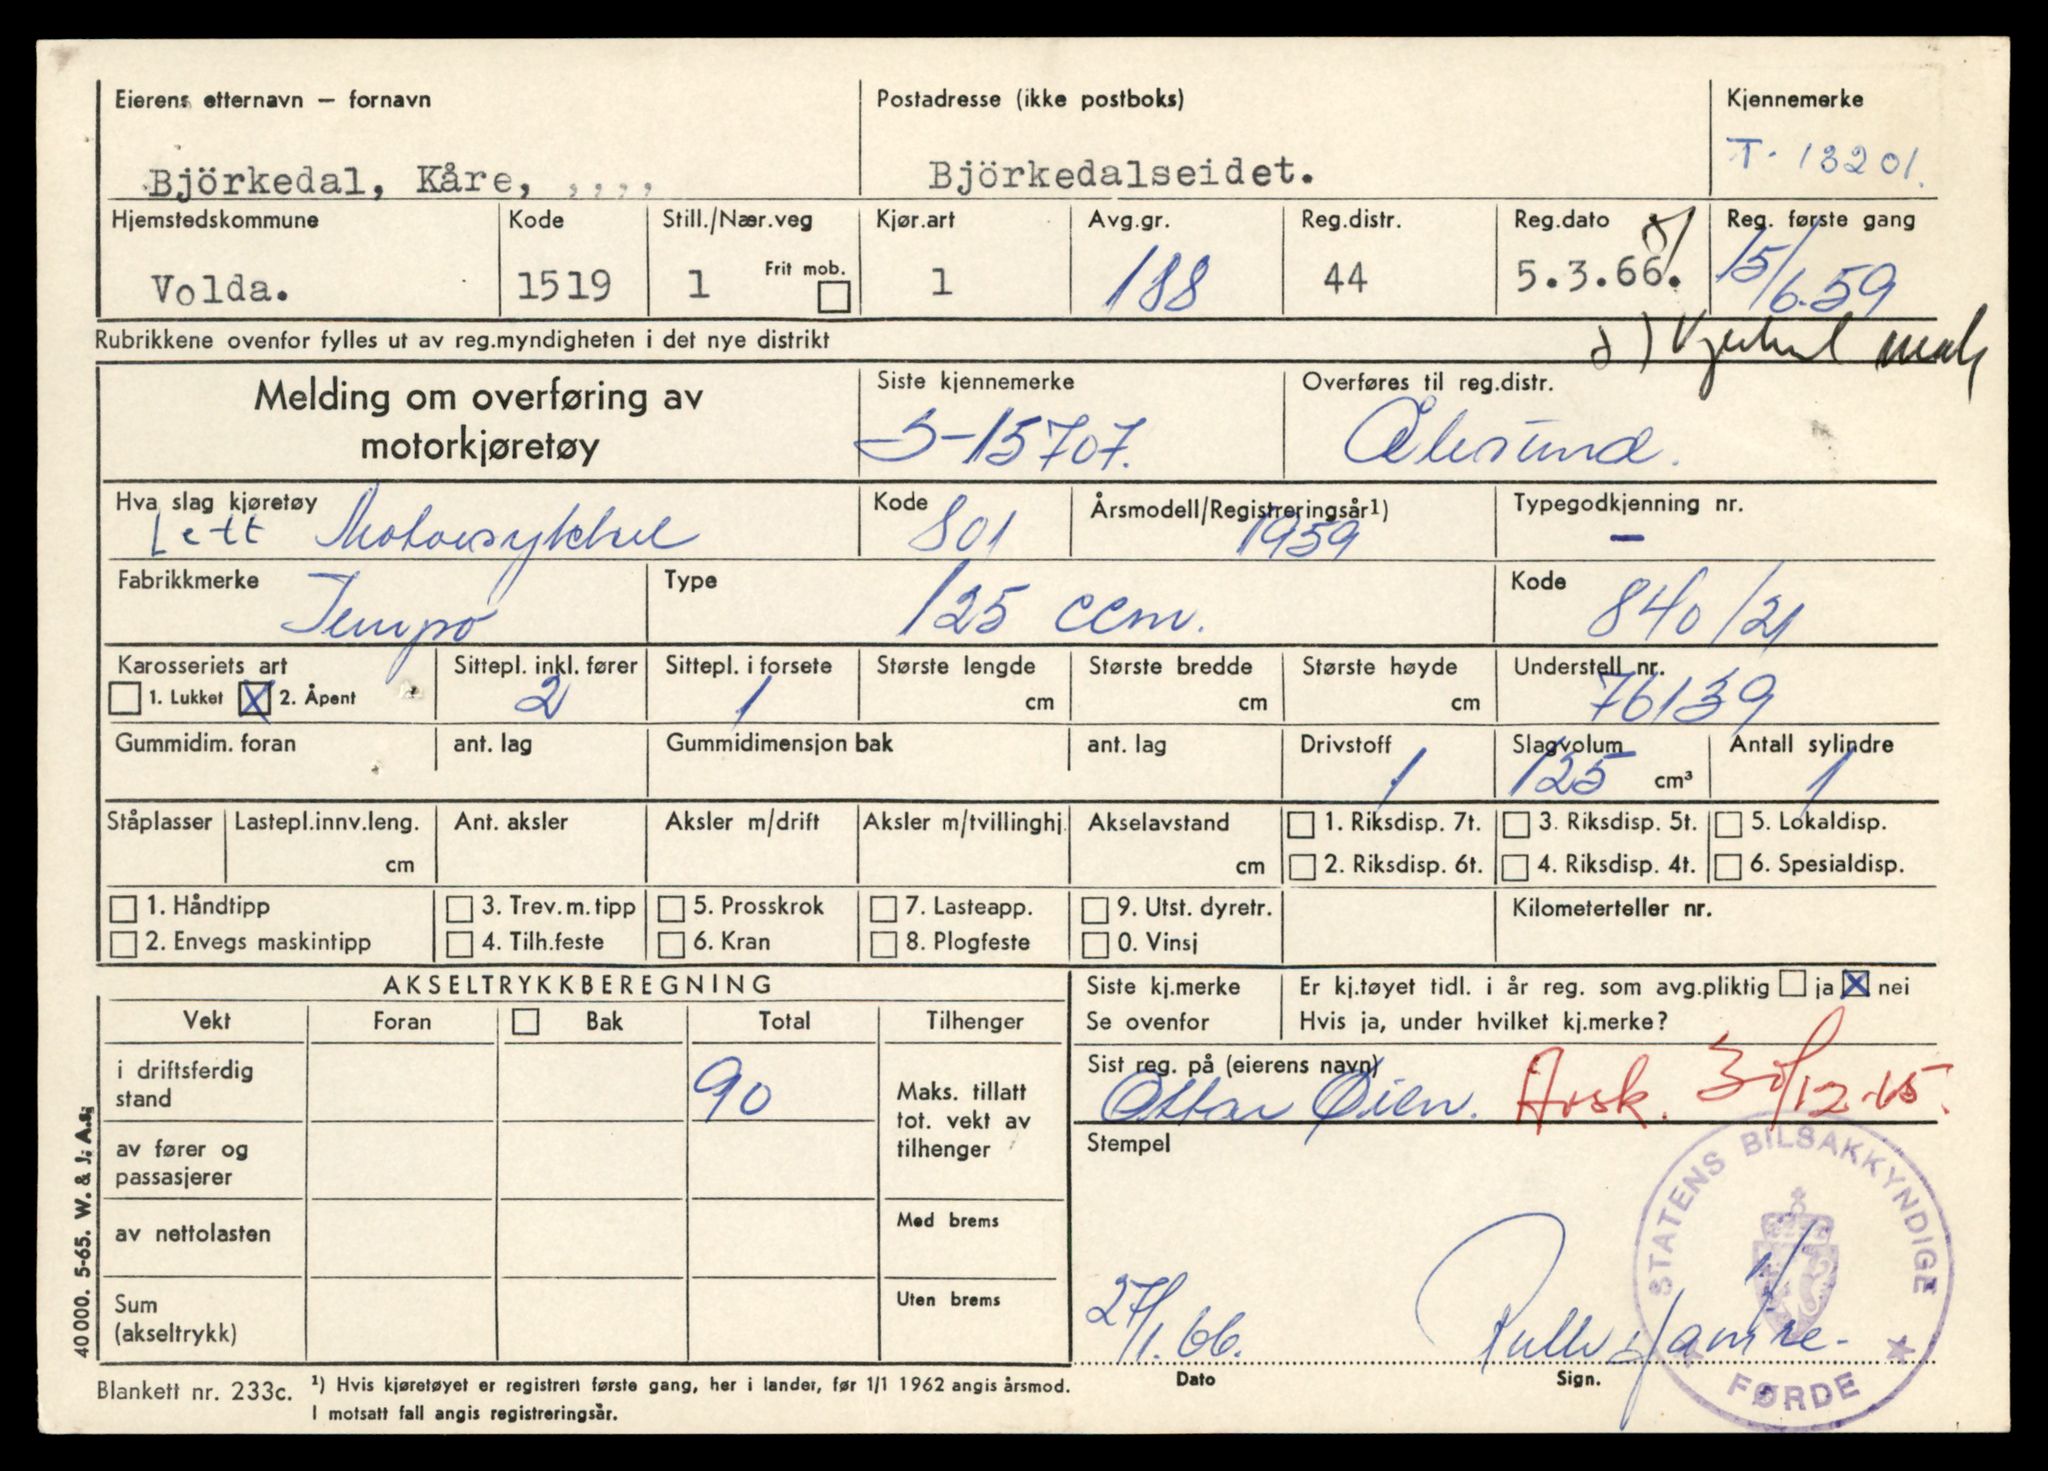 Eierens etternavn – fornavn
Postadresse (ikke postboks)
Kjennemerke
Björkedal, Kåre, , , , ,
Björkedalseidet.
T-13201.
Hjemstedskommune
Kode
Still./Nær.veg
Kjør.art
Avg.gr.
Reg.distr.
Reg.dato
Reg. første gang
Volda.
1519
1
Frit mob.
1
188
44
5.3.66.
15/6.59
Rubrikkene ovenfor fylles ut av reg.myndigheten i det nye distrikt
Melding om overføring av
motorkjøretøy
Siste kjennemerke
Overføres til reg.distr.
S-15707.
Ålesund.
Hva slag kjøretøy
Kode
Årsmodell/Registreringsår1)
Typegodkjenning nr.
Lett Motorsykkel
801
1959
–
Fabrikkmerke
Type
Kode
Tempo
125 ccm.
840/21
Karosseriets art
Sittepl. inkl. fører
Sittepl. i forsete
Største lengde
Største bredde
Største høyde
Understell nr.
1. Lukket X 2. Åpent
2
1
cm
cm
cm
76139
Gummidim. foran
ant. lag
Gummidimensjon bak
ant. lag
Drivstoff
Slagvolum
Antall sylindre
1
125 cm³
1
Ståplasser
Lastepl.innv.leng.
Ant. aksler
Aksler m/drift
Aksler m/tvillinghj.
Akselavstand
1. Riksdisp. 7t.
3. Riksdisp. 5t.
5. Lokaldisp.
cm
cm
2. Riksdisp. 6t.
4. Riksdisp. 4t.
6. Spesialdisp.
1. Håndtipp
3. Trev.m.tipp
5. Prosskrok
7. Lasteapp.
9. Utst. dyretr.
Kilometerteller nr.
2. Envegs maskintipp
4. Tilh.feste
6. Kran
8. Plogfeste
0. Vinsj
AKSELTRYKKBEREGNING
Siste kj.merke
Er kj.tøyet tidl. i år reg. som avg.pliktig ja X nei
Vekt
Foran
Bak
Total
Tilhenger
Se ovenfor
Hvis ja, under hvilket kj.merke?
i driftsferdig
stand
90
Maks. tillatt
tot. vekt av
tilhenger
Sist reg. på (eierens navn)
Ottar Øien. Avsk. 30/12-65.
av fører og
passasjerer
Stempel
av nettolasten
Med brems
Sum
(akseltrykk)
Uten brems
STATENS BILSAKKYNDIGE
FØRDE
27/1.66.
Dato
Sign.
40 000. 5-65. W. & J. A.s.
Blankett nr. 233c.
1) Hvis kjøretøyet er registrert første gang, her i landet, før 1/1 1962 angis årsmod.
I motsatt fall angis registreringsår.